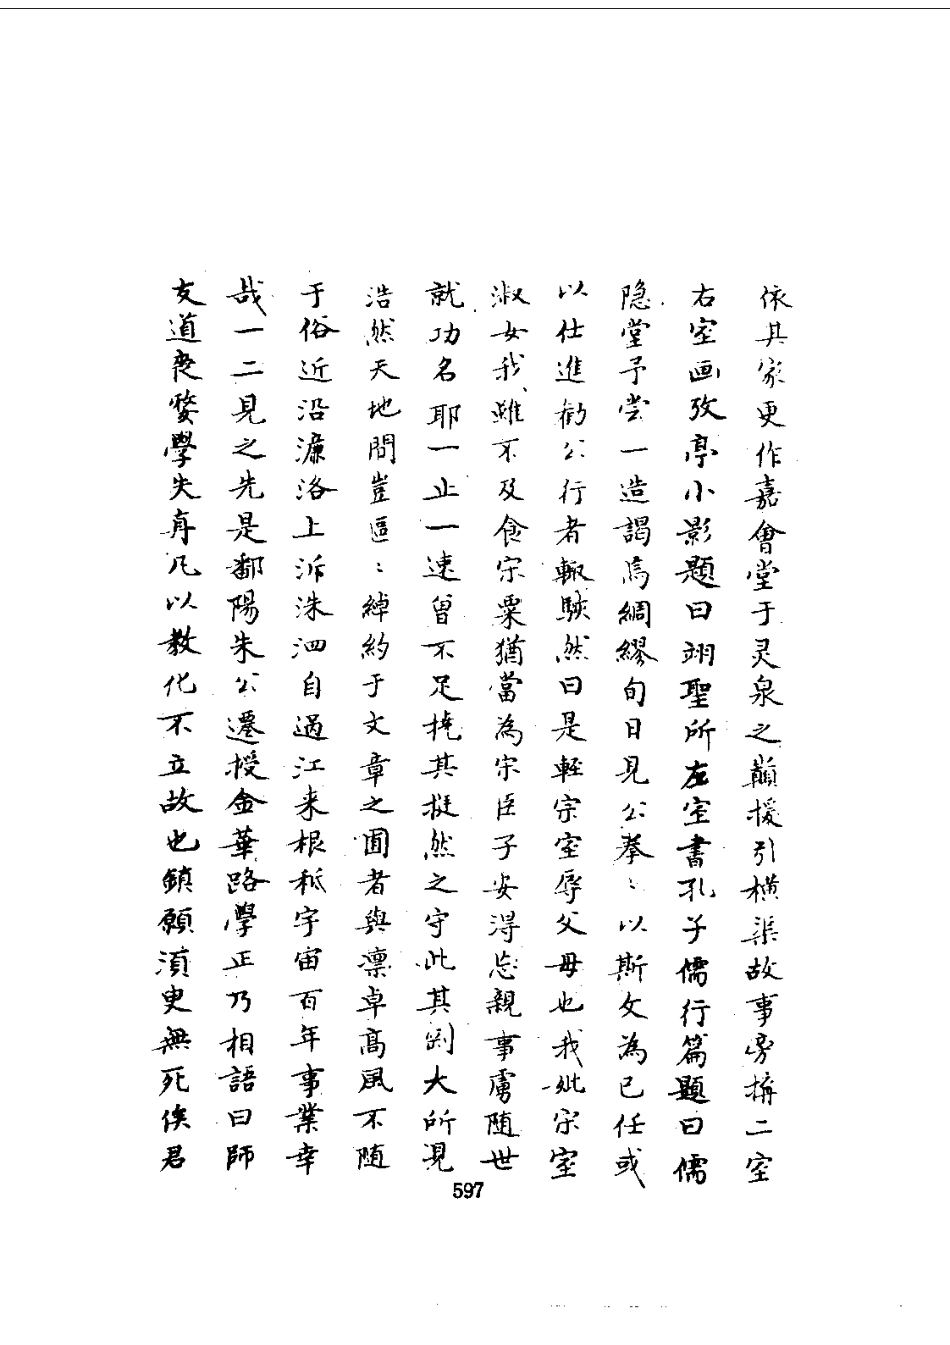 依其家更作嘉會堂于灵泉之巔援引橫渠故事旁搆二室
右室画孜亭小影題曰翊聖所左室書孔子儒行篇題曰儒
隐堂予尝一造謁焉綢繆旬日見公拳〻以斯文為己任或
以仕進勸公行者輙駴然曰是輕宗室辱父母也我妣宗室
淑女我雖不及食宋粟猶當為宋臣子安得忘親事虜随世
就功名耶一止一速曾不足撓其挺然之守此其剛大所見
浩然天地間豈區〻綽約于文章之囿者與凛卓髙風不随
于俗近沿濂洛上泝洙泗自過江来根柢宇宙百年事業幸
哉一二見之先是鄱陽朱公遷授金華路學正乃相語曰師
友道丧婺學失眞凡以教化不立故也鎮願湏臾無死俟君
597